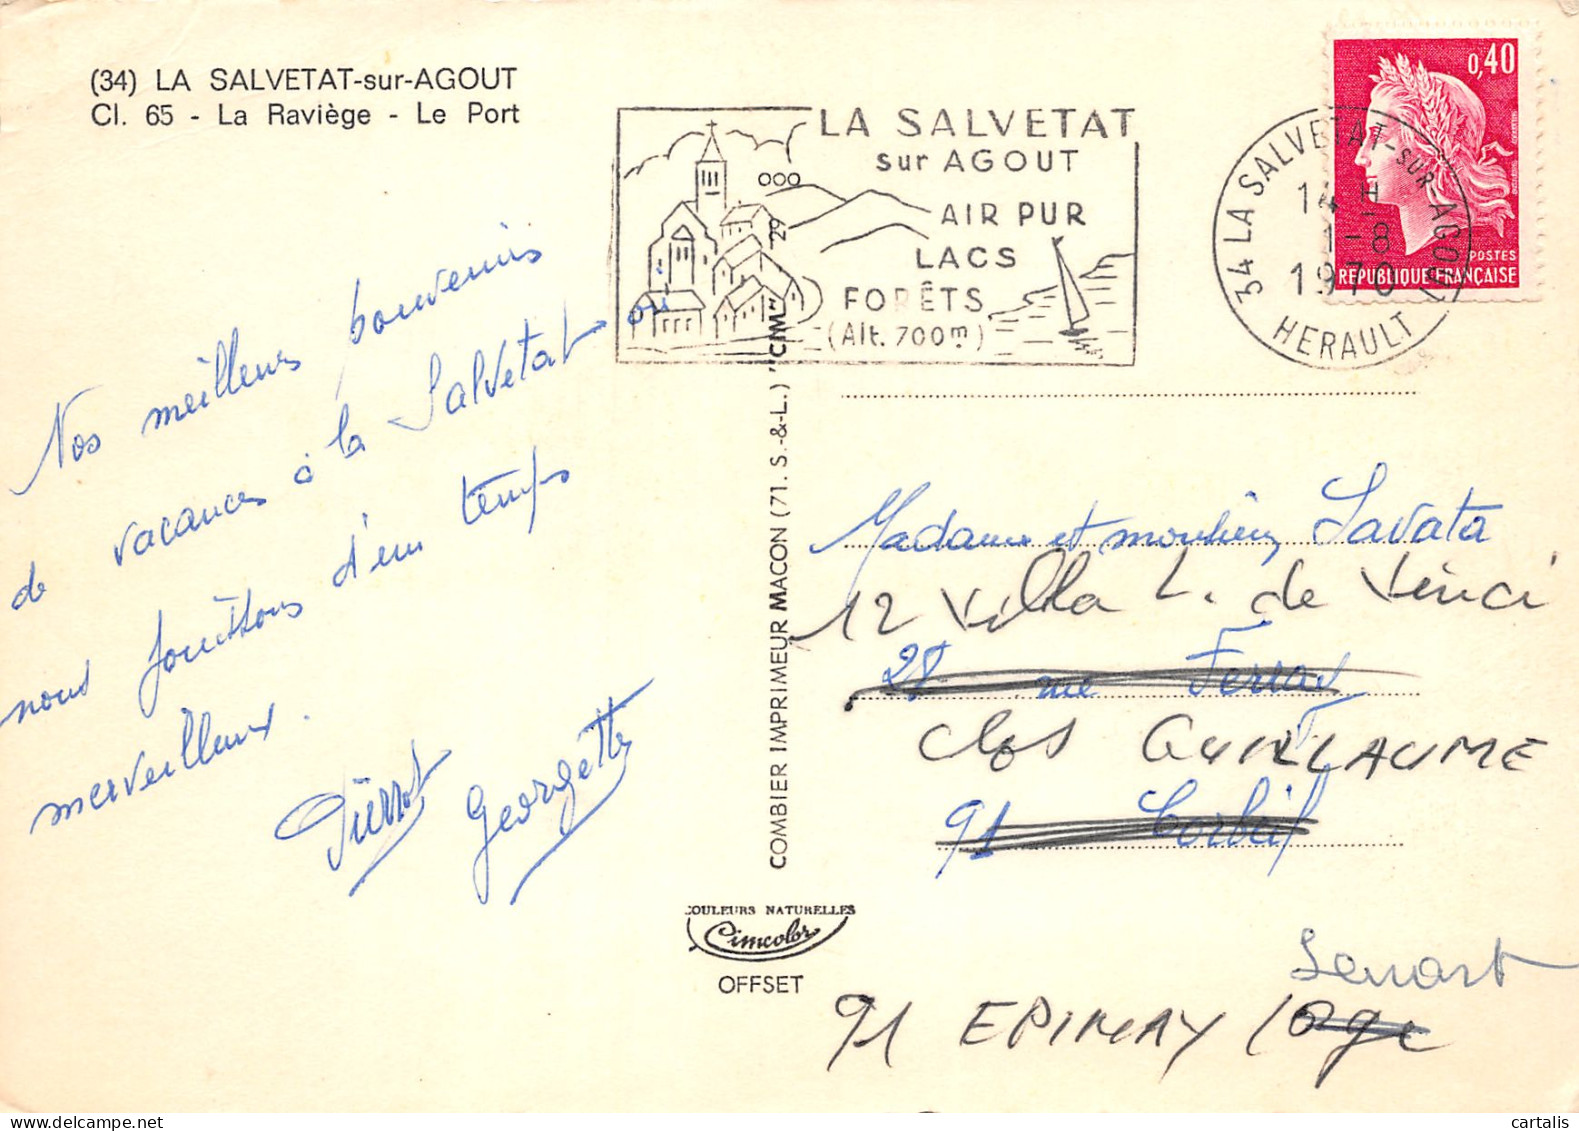 (34) LA SALVETAT-sur-AGOUT
Cl. 65 - La Raviège - Le Port
LA SALVETAT
sur AGOUT
AIR PUR
LACS
FORÊTS
(Alt. 700m)
0,40
POSTES
REPUBLIQUE FRANÇAISE
34 LA SALVETAT-SUR-AGOUT
14 H
1-8
1970
HERAULT
Nos meilleurs souvenirs
de vacances à la Salvetat où
nous jouissons d'un temps
merveilleux.
Pierrot
Georgette
COMBIER IMPRIMEUR MACON (71. S.-&-L.) "CIM" 29
COULEURS NATURELLES
Cimcolor
OFFSET
Madame et monsieur Savata
12 Villa L. de Vinci
28 rue
Clos GUILLAUME
91 Corbeil
Senart
91 EPINAY / Orge
cartalis